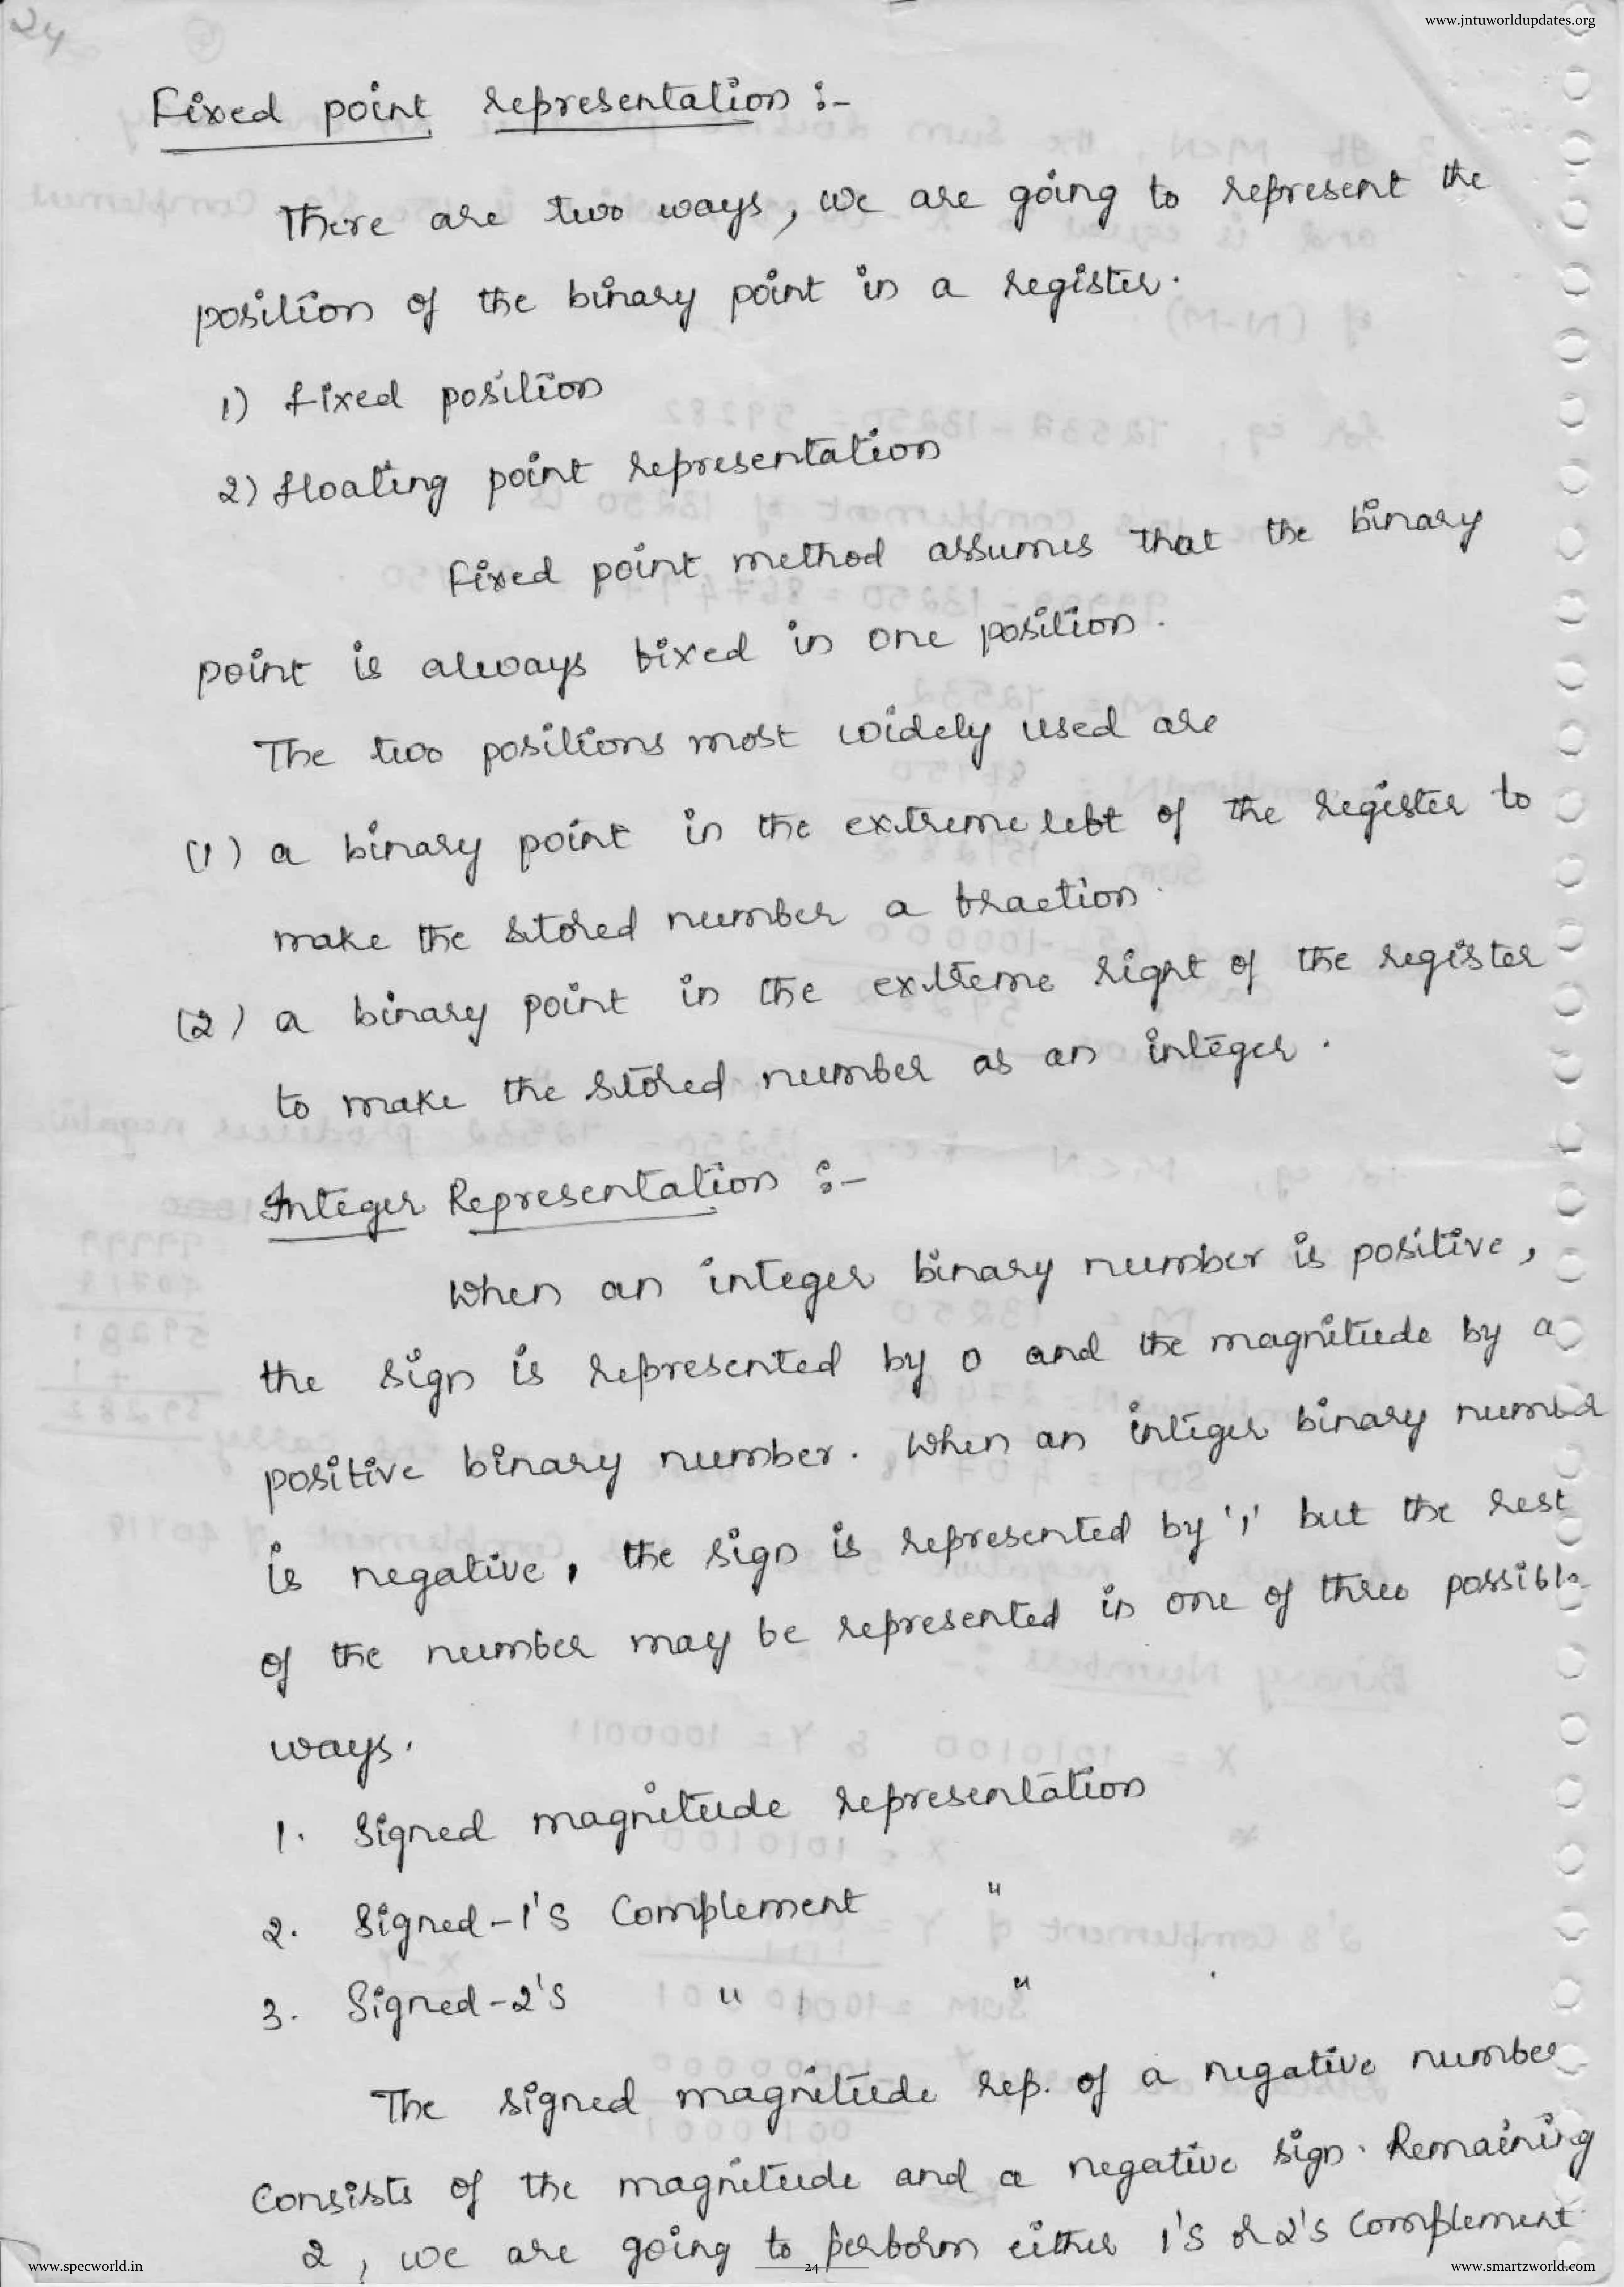 24
www.jntuworldupdates.org
Fixed point representation :-
There are two ways, we are going to represent the
position of the binary point in a register.
1) fixed position
2) floating point representation
Fixed point method assumes that the binary
point is always fixed in one position.
The two positions most widely used are
(1) a binary point in the extreme left of the register to
make the stored number a fraction.
(2) a binary point in the extreme right of the register
to make the stored number as an integer.
Integer Representation :-
When an integer binary number is positive,
the sign is represented by 0 and the magnitude by a
positive binary number. When an integer binary number
is negative, the sign is represented by '1' but the rest
of the number may be represented in one of three possible
ways.
1. Signed magnitude representation
2. Signed-1's Complement "
3. Signed-2's " "
The signed magnitude rep. of a negative number
consists of the magnitude and a negative sign. Remaining
2, we are going to perform either 1's or 2's complement
www.specworld.in
24
www.smartzworld.com